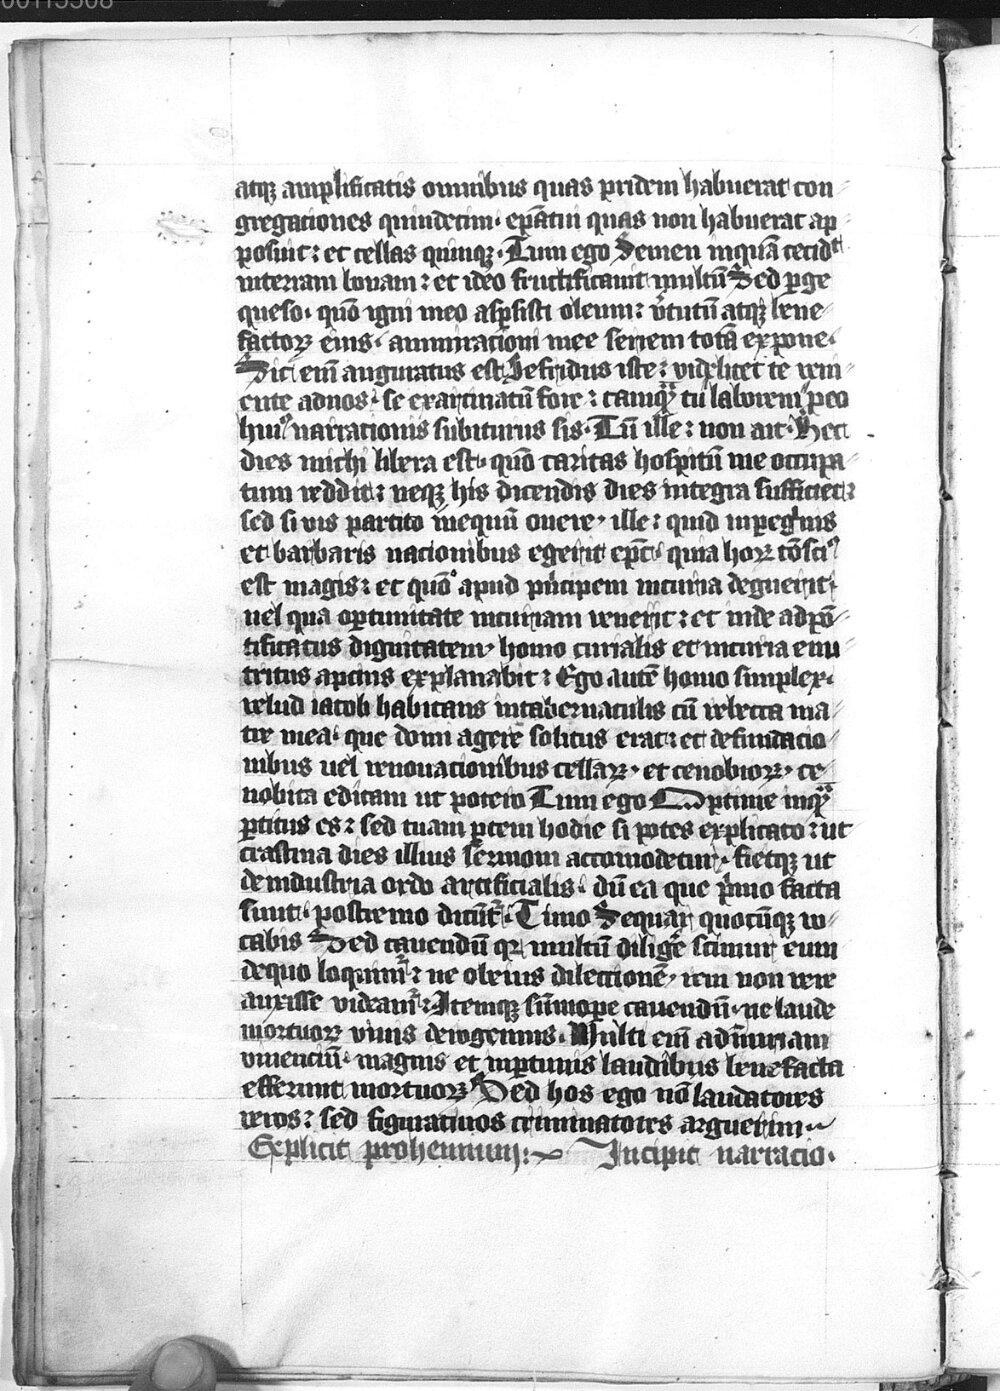 00113508
atqꝫ amplificatis omnibus quas pridem habuerat con
gregaciones quindecim · ep̄atui quas non habuerat ap
posuit : et cellas quinqꝫ · Tum ego Semen inquā cecidit
interram bonam : et ideo fructificauit multū Sed ꝑge
queso · quō igni meo aspsisti oleum : v̄tutū atqꝫ bene
factoꝝ eius · ammiracioni mee seriem totā expone ·
Sic em̄ auguratus est Sefridus iste : videlicet te veni
ente adnos · se exarcinatū fore : tamqꝫ tu laborem ꝓpeo
huiꝰ narrationis subiturus sis · Tū ille : non ait · Hec
dies michi libera est · quō caritas hospitū me occupa
tum reddit : neqꝫ his dicendis dies integra sufficiet :
sed si vis partito mequū onere · ille : quid inpegrinis
et barbaris nacionibus egerit ep̄c · quia hoꝝ cōsciꝰ
est magis : et quō apud pricipem incuria deguerit ·
uel qua oportunitate incuriam uenerit : et inde adpō
tificatus dignitatem · homo curialis et incuria enu
tritus apcius explanabit : Ego autē homo simplex ·
velud iacob habitans intabernaculis cū rebecca ma
tre mea · que domi agere solitus erat : et defundacio
nibus uel renouacionibus cellaꝝ · et cenobioꝝ · ce
nobita editam ut potero Tum ego Optime inqꝫ
ꝑtitus es : sed tuam ꝑtem hodie si potes explicato : ut
crastina dies illius sermoni accomodetur · fietqꝫ ut
deindustria ordo artificialis · dū ea que p̄mo facta
sunt · postremo dicūt᷑ · Timo Sequar quocūqꝫ vo
cabis Sed cauendū qꝛ multū diligē scimur eum
dequo loquim᷑ : ne oleius dilectionē · rem non vere
auxisse videam᷑ : Itemqꝫ sūmope cauendū · ne laude
mortuoꝝ viuis derogemus · Multi em̄ ad iniuriam
viuenciū · magnis et inportunis laudibus benefacta
efferunt mortuoꝝ Sed hos ego nō laudatores
veros : sed figuratiuos criminatores arguerim ·
Explicit prohemium : Incipit narracio ·